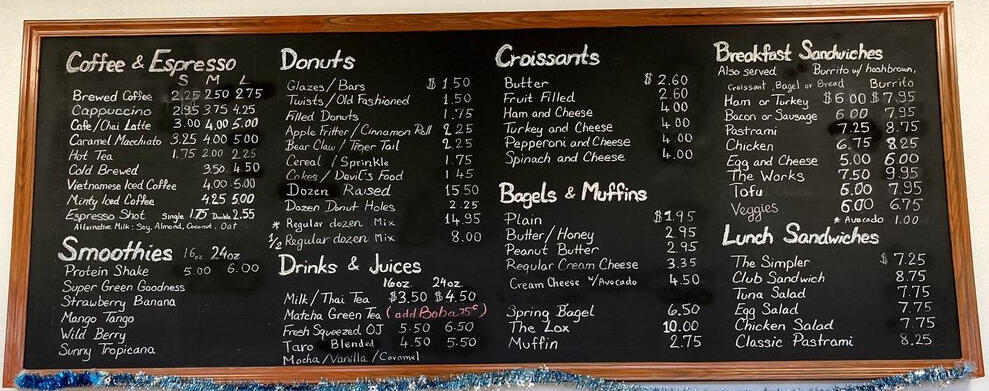 Coffee & Espresso
S M L
Brewed Coffee 2.25 2.50 2.75
Cappuccino 2.95 3.75 4.25
Cafe/Chai Latte 3.00 4.00 5.00
Caramel Macchiato 3.25 4.00 5.00
Hot Tea 1.75 2.00 2.25
Cold Brewed 3.50 4.50
Vietnamese Iced Coffee 4.00 5.00
Minty Iced Coffee 4.25 5.00
Espresso Shot Single 1.75 Double 2.55
Alternative Milk: Soy, Almond, Coconut, Oat
Smoothies 16oz 24oz
Protein Shake 5.00 6.00
Super Green Goodness
Strawberry Banana
Mango Tango
Wild Berry
Sunny Tropicana
Donuts
Glazes/Bars $1.50
Twists/Old Fashioned 1.50
Filled Donuts 1.75
Apple Fritter/Cinnamon Roll 2.25
Bear Claw/Tiger Tail 2.25
Cereal/Sprinkle 1.75
Cakes/Devil's Food 1.45
Dozen Raised 15.50
Dozen Donut Holes 2.25
* Regular dozen Mix 14.95
1/2 Regular dozen Mix 8.00
Drinks & Juices
16oz. 24oz.
Milk/Thai Tea $3.50 $4.50
Matcha Green Tea (add Boba 75¢)
Fresh Squeezed OJ 5.50 6.50
Taro Blended 4.50 5.50
Mocha/Vanilla/Caramel
Croissants
Butter $2.60
Fruit Filled 2.60
Ham and Cheese 4.00
Turkey and Cheese 4.00
Pepperoni and Cheese 4.00
Spinach and Cheese 4.00
Bagels & Muffins
Plain $1.95
Butter/Honey 2.95
Peanut Butter 2.95
Regular Cream Cheese 3.35
Cream Cheese w/Avocado 4.50
Spring Bagel 6.50
The Lox 10.00
Muffin 2.75
Breakfast Sandwiches
Also served Burrito w/ hashbrown,
Croissant, Bagel or Bread Burrito
Ham or Turkey $6.00 $7.95
Bacon or Sausage 6.00 7.95
Pastrami 7.25 8.75
Chicken 6.75 8.25
Egg and Cheese 5.00 6.00
The Works 7.50 9.95
Tofu 6.00 7.95
Veggies 6.00 6.75
* Avocado 1.00
Lunch Sandwiches
The Simpler $7.25
Club Sandwich 8.75
Tuna Salad 7.75
Egg Salad 7.75
Chicken Salad 7.75
Classic Pastrami 8.25